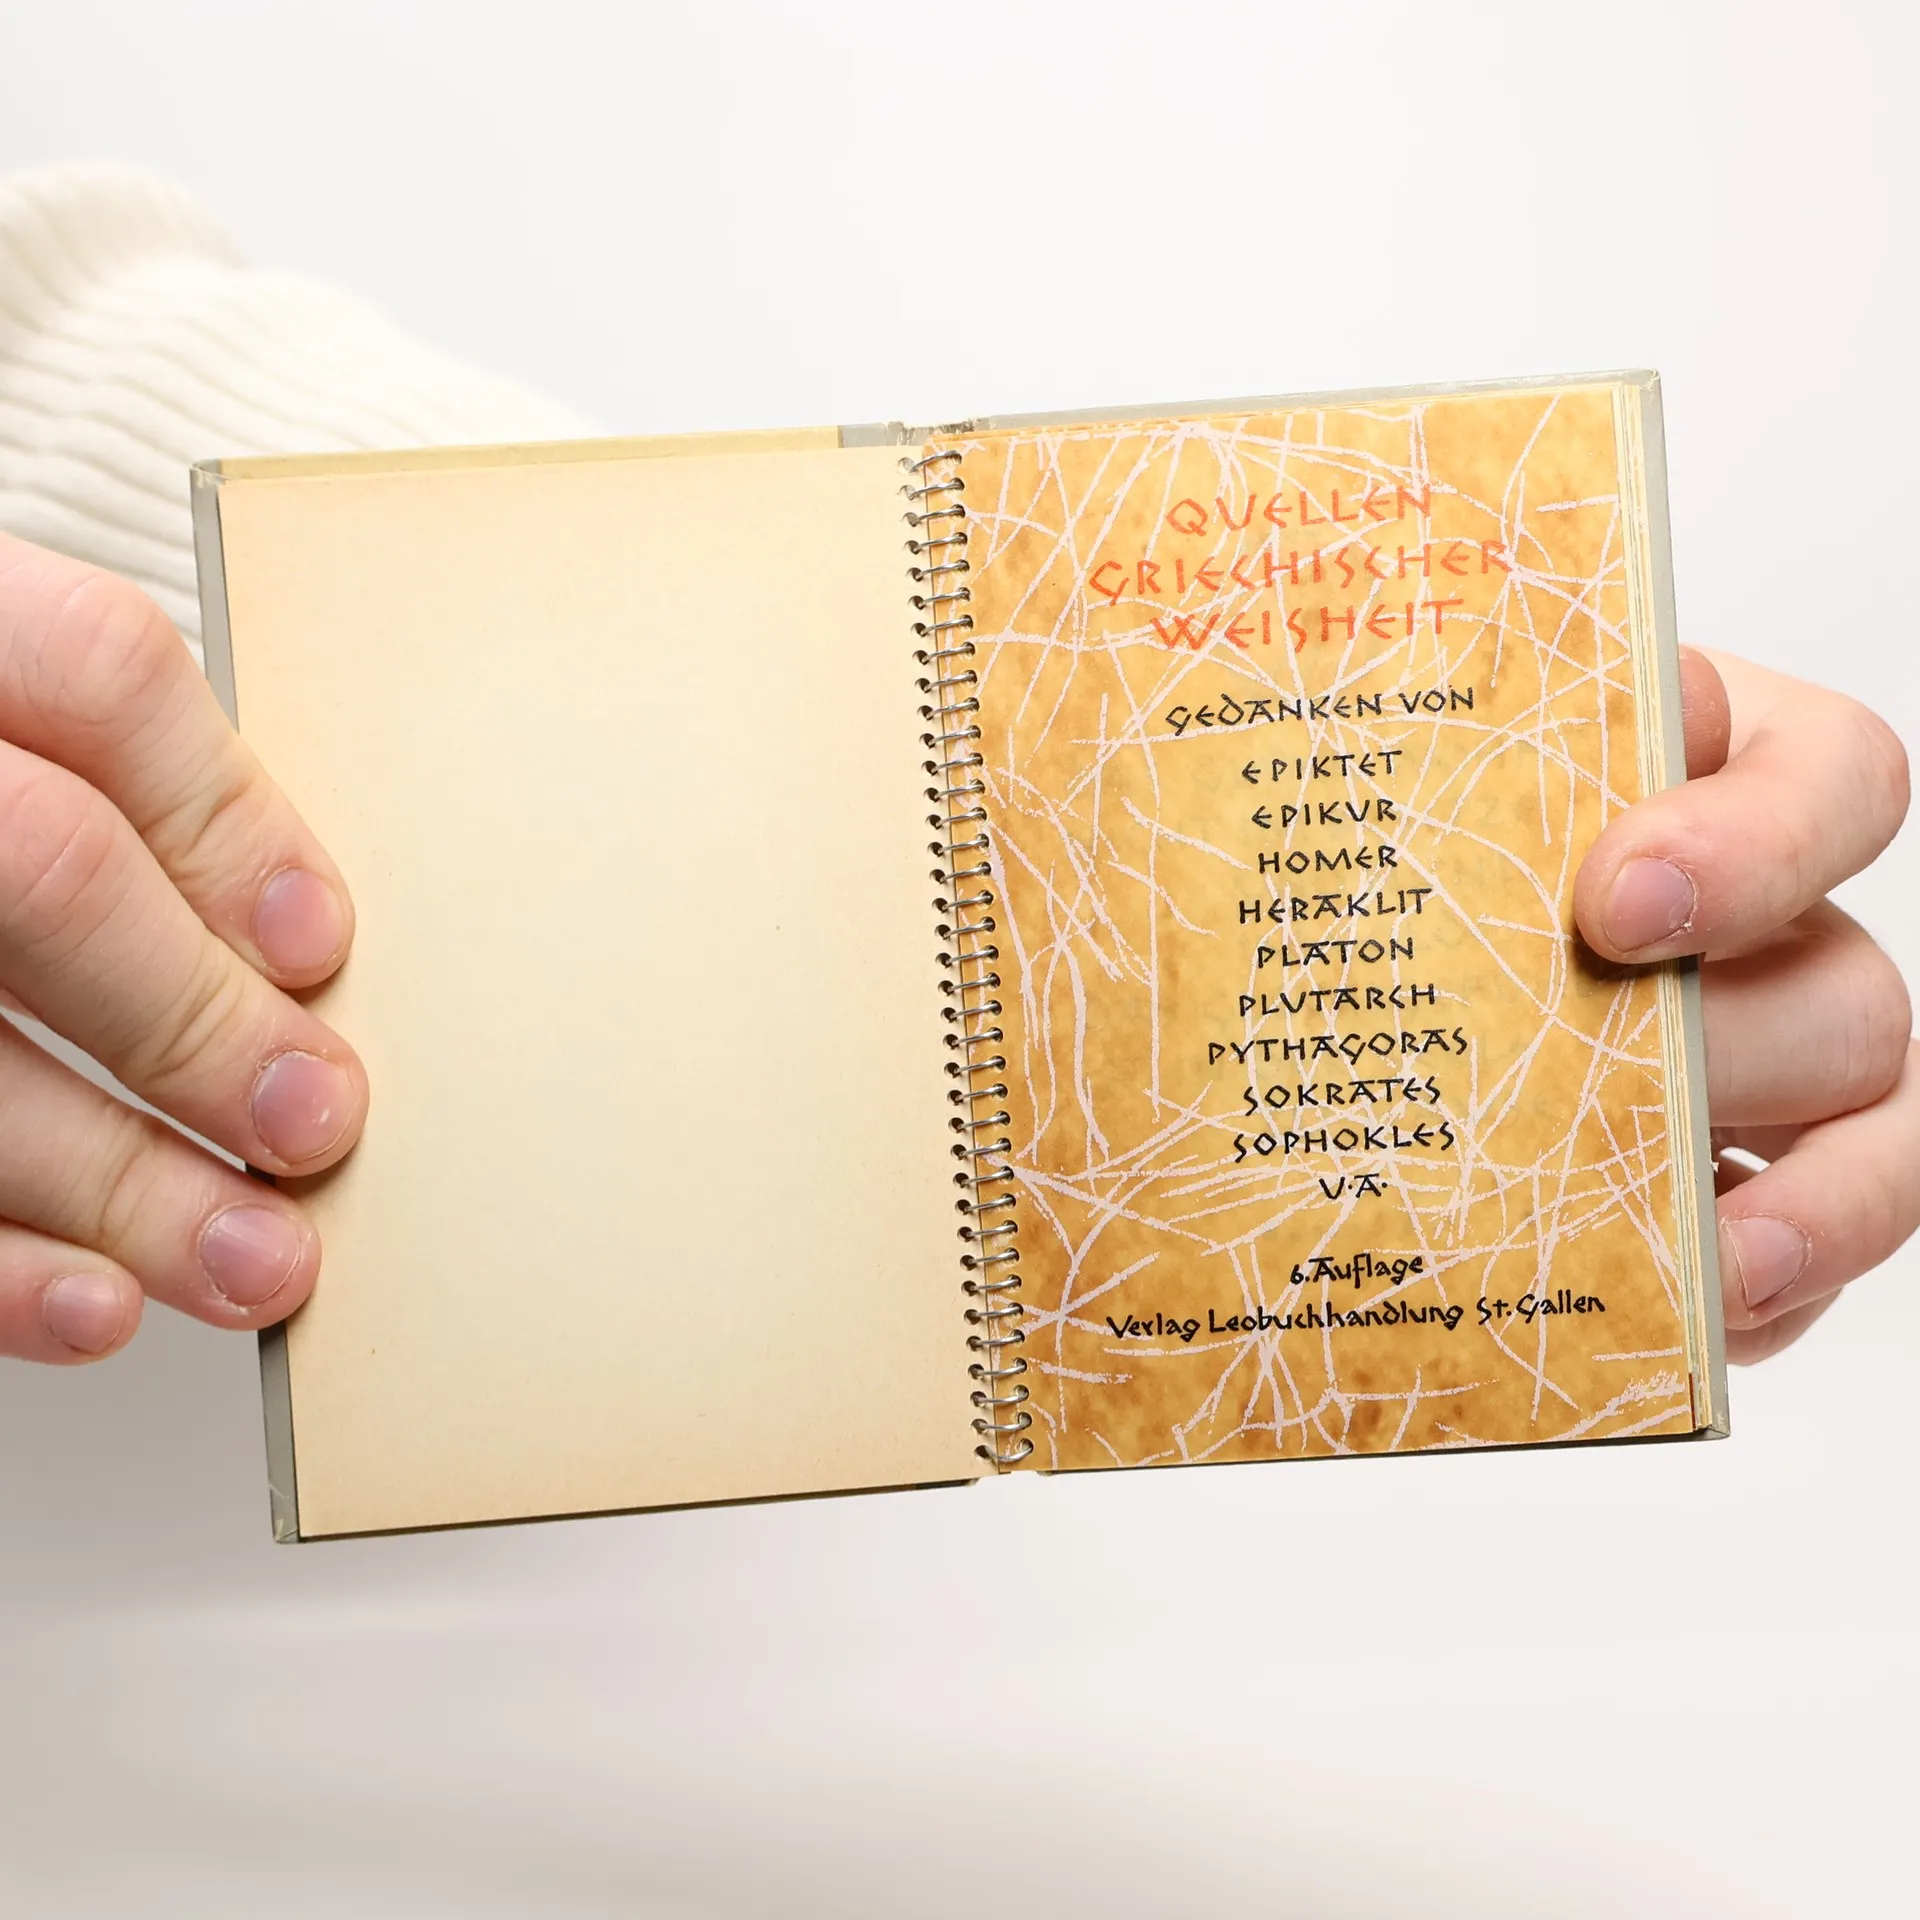 QUELLEN
GRIECHISCHER
WEISHEIT
GEDANKEN VON
EPIKTET
EPIKUR
HOMER
HERAKLIT
PLATON
PLUTARCH
PYTHAGORAS
SOKRATES
SOPHOKLES
U.A.
6. Auflage
Verlag Leobuchhandlung St. Gallen